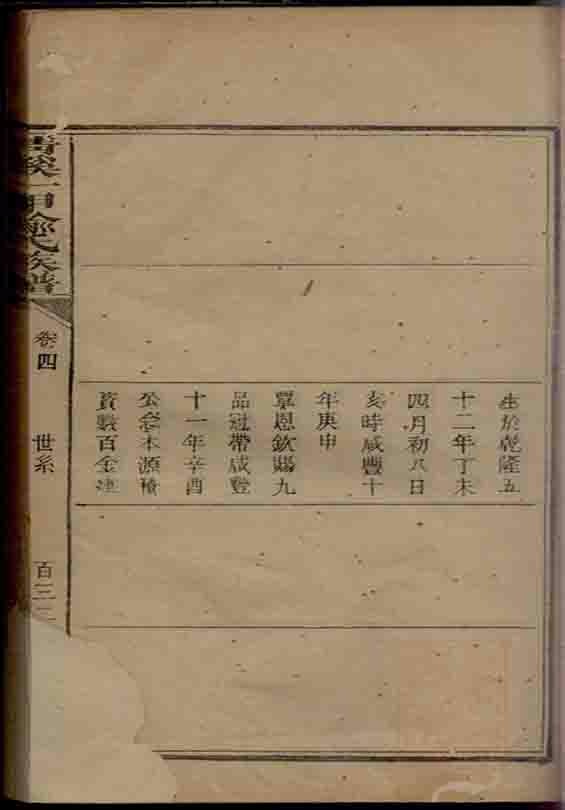 生於乾隆五
十二年丁未
四月初八日
亥時咸豐十
年庚申
覃恩欽賜九
品冠帶咸豐
十一年辛酉
公念本源積
資數百金建
清溪一甲余氏族譜
卷四
世系
百三三